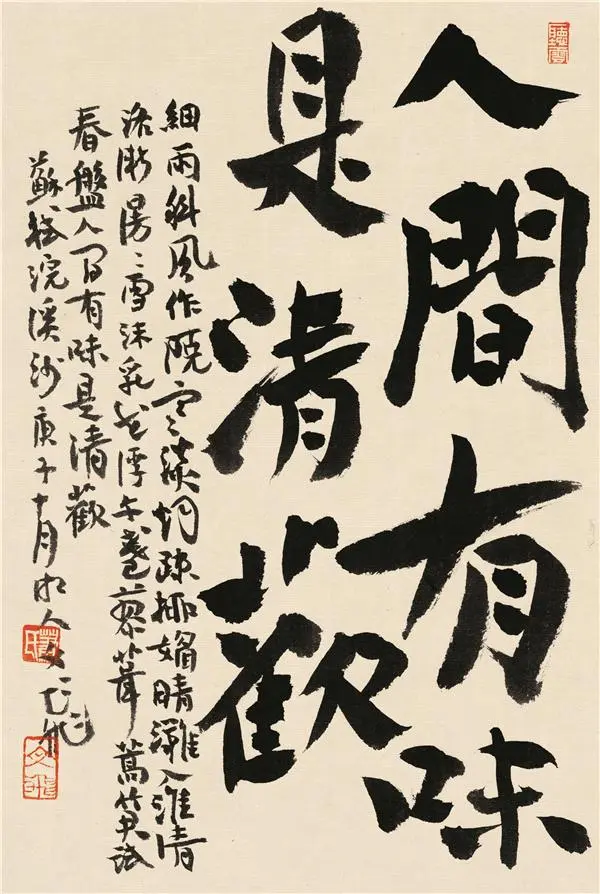 人間有味
是清歡
細雨斜風作曉寒淡烟疎柳媚晴灘入淮清
洛漸漫〻雪沫乳花浮午盞蓼茸蒿笋試
春盤人间有味是清歡
蘇軾浣溪沙庚子十月
文飛